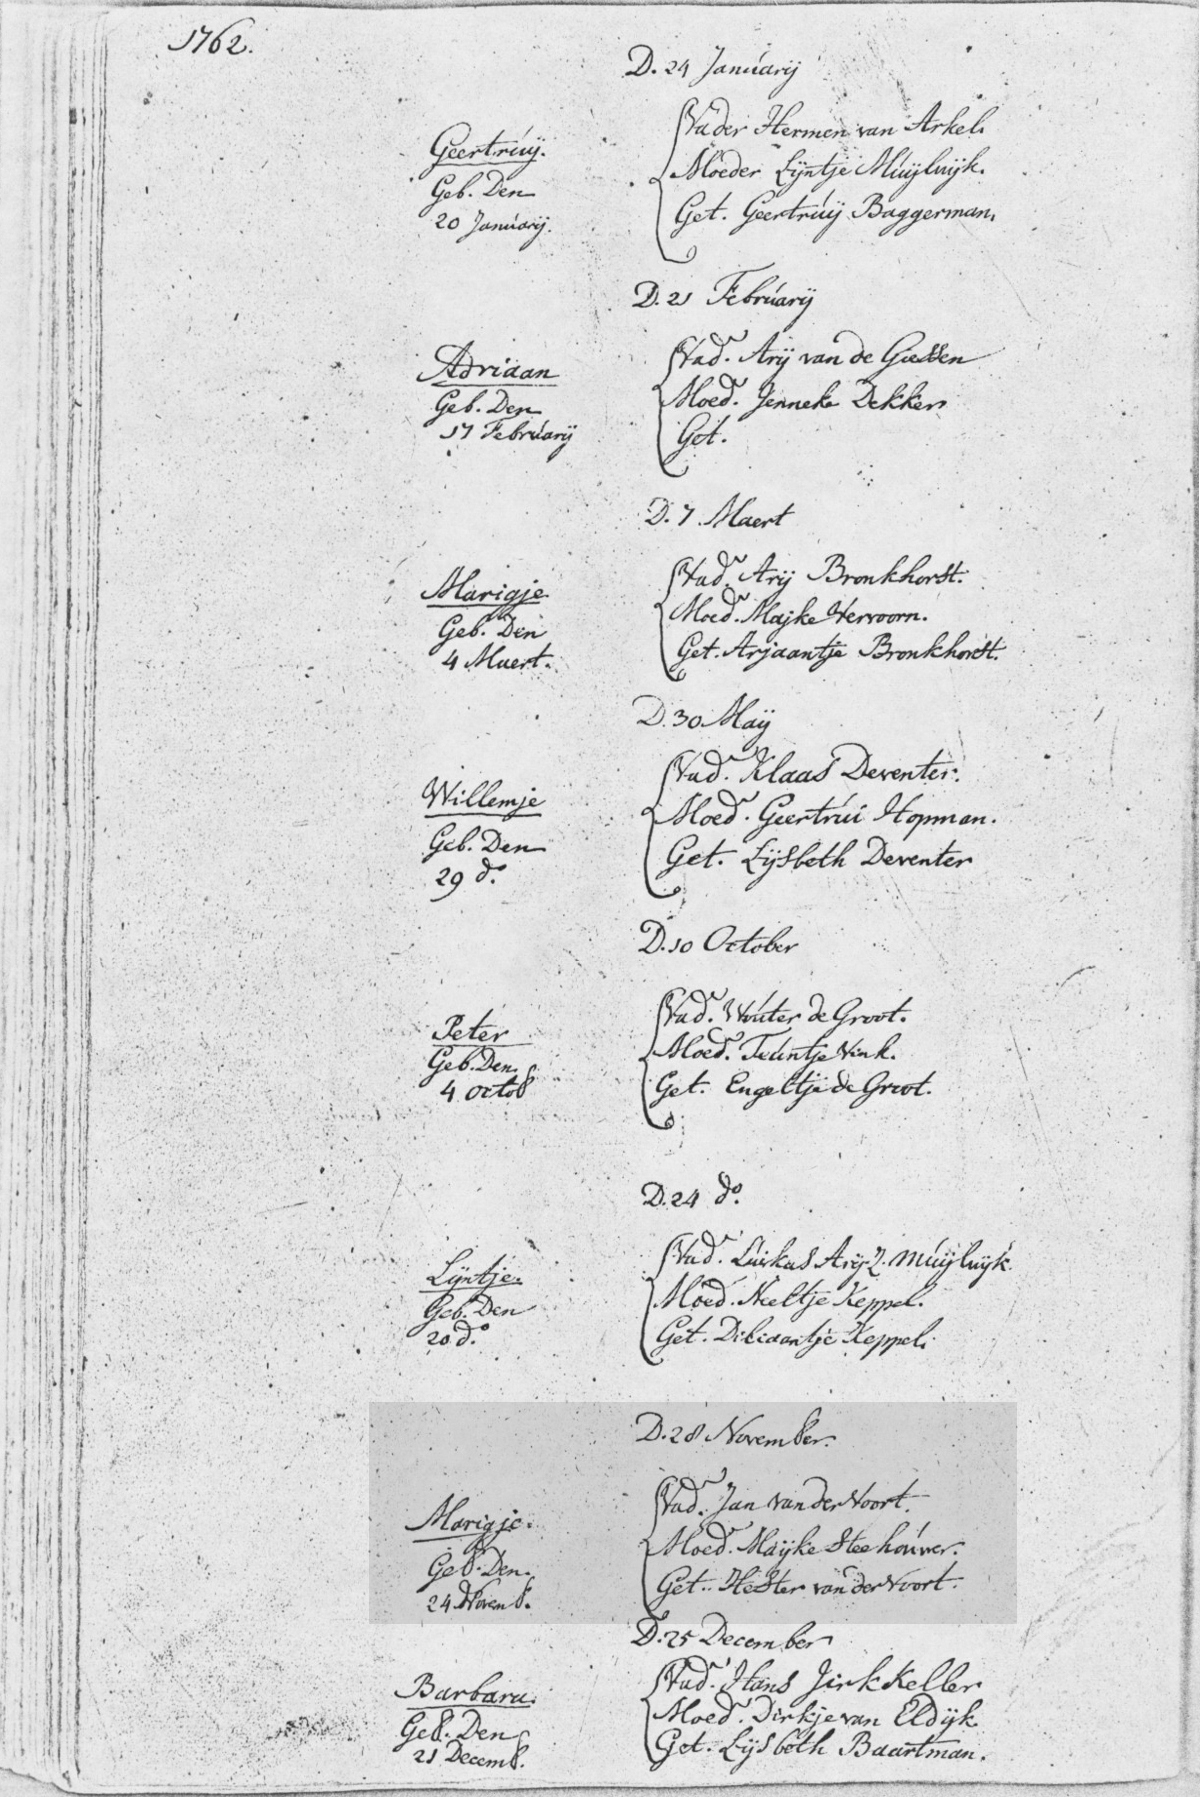 1762.
D. 24 Januarij
Geertruij.
Geb. Den
20 Januarij.
Vader Hermen van Arkel.
Moeder Lijntje Muijlwijk.
Get. Geertruij Baggerman.
D. 21 Februarij
Adriaan
Geb. Den
17 Februarij
Vad.r Arij van de Giessen
Moed.r Jenneke Dekker
Get.
D. 7. Maert
Marigje
Geb. Den
4 Maert.
Vad.r Arij Bronkhorst.
Moed.r Majke Vervoorn.
Get. Arjaantje Bronkhorst.
D. 30 Maij
Willemje
Geb. Den
29 do.
Vad.r Klaas Deventer.
Moed.r Geertrui Hopman.
Get. Lijsbeth Deventer
D. 10 October
Peter
Geb. Den
4 Octob
Vad.r Wouter de Groot.
Moed.r Teuntje Vink.
Get. Engeltje de Groot.
D. 24 do.
Lijntje.
Geb. Den
20 do.
Vad.r Luikas Arij Z. Muijlwijk.
Moed.r Neeltje Keppel.
Get. Diliaantje Keppel.
D. 28 November.
Marigje.
Geb. Den.
24 Novemb.
Vad.r Jan van der Voort.
Moed.r Maijke Steehouwer.
Get. Hester van der Voort.
D. 25 December
Barbara.
Geb. Den
21 Decemb.
Vad.r Hans Jirk Keller
Moed.r Dirkje van Eldijk
Get. Lijsbeth Baartman.